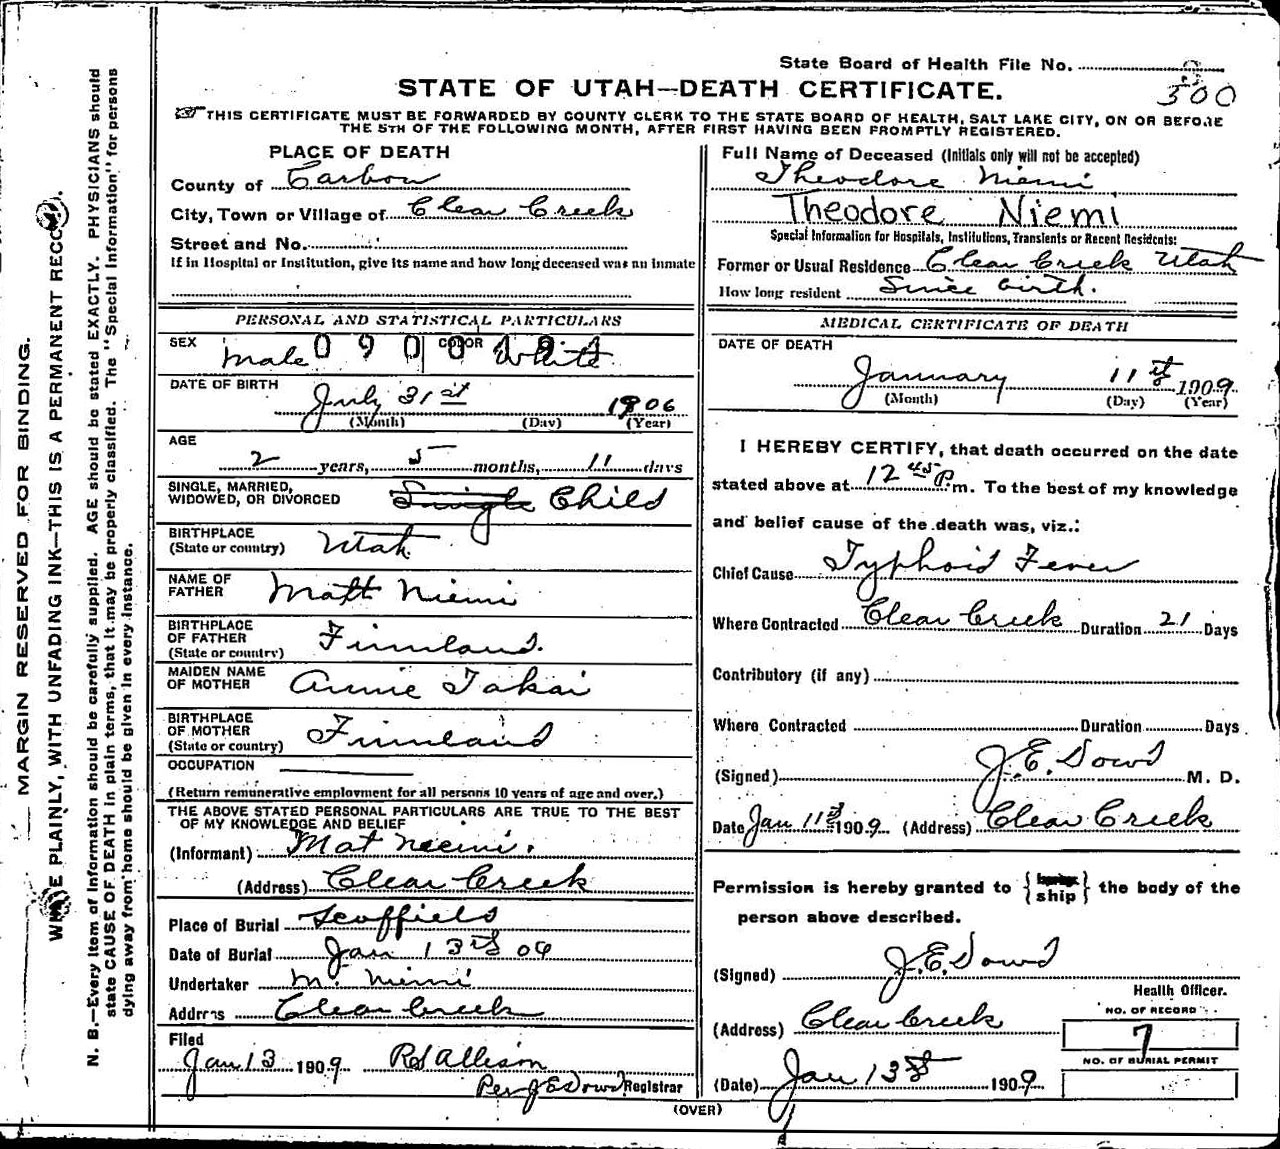 State Board of Health File No.
300
STATE OF UTAH—DEATH CERTIFICATE.
THIS CERTIFICATE MUST BE FORWARDED BY COUNTY CLERK TO THE STATE BOARD OF HEALTH, SALT LAKE CITY, ON OR BEFORE
THE 5TH OF THE FOLLOWING MONTH, AFTER FIRST HAVING BEEN PROMPTLY REGISTERED.
MARGIN RESERVED FOR BINDING.
PLAINLY, WITH UNFADING INK—THIS IS A PERMANENT
N. B.—Every item of Information should be carefully supplied. AGE should be stated EXACTLY. PHYSICIANS should
state CAUSE OF DEATH in plain terms, that it may be properly classified. The "Special Information" for persons
dying away from home should be given in every instance.
PLACE OF DEATH
County of Carbon
City, Town or Village of Clear Creek
Street and No.
If in Hospital or Institution, give its name and how long deceased was an inmate
PERSONAL AND STATISTICAL PARTICULARS
SEX Male COLOR White
DATE OF BIRTH
July 31st 1906
(Month) (Day) (Year)
AGE
2 years, 5 months, 11 days
SINGLE, MARRIED,
WIDOWED, OR DIVORCED Single Child
BIRTHPLACE
(State or country) Utah
NAME OF
FATHER Matt Niemi
BIRTHPLACE
OF FATHER
(State or country) Finnland.
MAIDEN NAME
OF MOTHER Annie Takai
BIRTHPLACE
OF MOTHER
(State or country) Finnland
OCCUPATION
(Return remunerative employment for all persons 10 years of age and over.)
THE ABOVE STATED PERSONAL PARTICULARS ARE TRUE TO THE BEST
OF MY KNOWLEDGE AND BELIEF
(Informant) Mat Niemi.
(Address) Clear Creek
Place of Burial Scoffield
Date of Burial Jan 13th 09
Undertaker M. Niemi
Address Clear Creek
Filed
Jan 13 1909 RS Allison
Per J E Dowd Registrar
Full Name of Deceased (Initials only will not be accepted)
Theodore Niemi
Theodore Niemi
Special Information for Hospitals, Institutions, Transients or Recent Residents:
Former or Usual Residence Clear Creek Utah
How long resident Since birth.
MEDICAL CERTIFICATE OF DEATH
DATE OF DEATH
January 11th 1909
(Month) (Day) (Year)
I HEREBY CERTIFY, that death occurred on the date
stated above at 12 45 P.m. To the best of my knowledge
and belief cause of the death was, viz.:
Chief Cause Typhoid Fever
Where Contracted Clear Creek Duration 21 Days
Contributory (if any)
Where Contracted Duration Days
(Signed) J.E. Dowd M. D.
Date Jan 11th 1909 (Address) Clear Creek
Permission is hereby granted to ship the body of the
person above described.
(Signed) J.E. Dowd
Health Officer.
(Address) Clear Creek
NO. OF RECORD
7
NO. OF BURIAL PERMIT
(Date) Jan 13th 1909
(OVER)